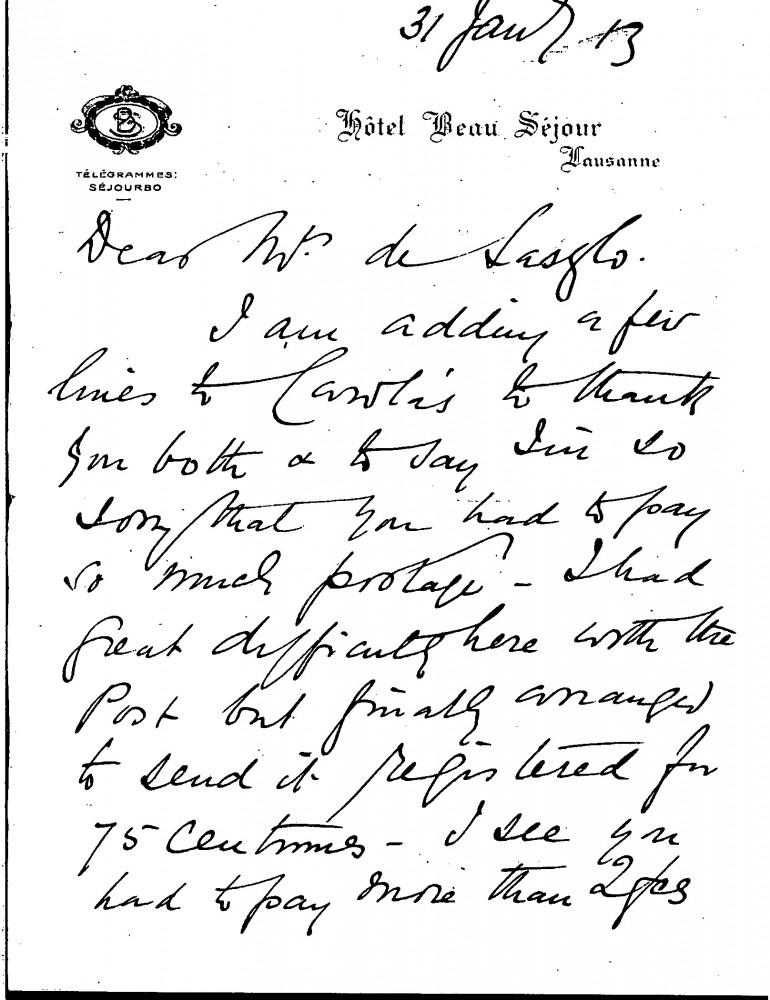 31 Jany 13
BS
Hôtel Beau Séjour
Lausanne
TÉLÉGRAMMES:
SÉJOURBO
Dear Mr. de Laszlo.
I am adding a few
lines to Carola's to thank
you both & to say I'm so
sorry that you had to pay
so much postage - I had
great difficulty here with the
Post but finally arranged
to send it registered for
75 Centimes - I see you
had to pay more than 2 fcs